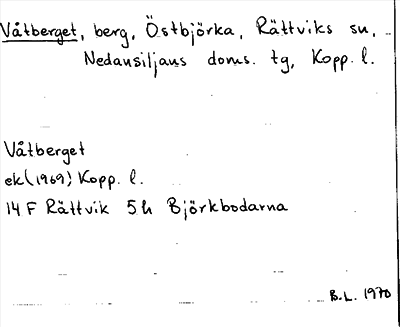 Våtberget, berg, Östbjörka, Rättviks sn,
Nedansiljans doms. tg, Kopp. l.
Våtberget
ek (1969) Kopp. l.
14 F Rättvik 5 h Björkbodarna
B.L. 1970